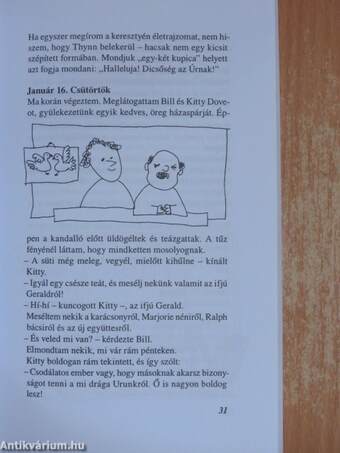 Ha egyszer megírom a keresztyén életrajzomat, nem hi-
szem, hogy Thynn belekerül – hacsak nem egy kicsit
szépített formában. Mondjuk „egy-két kupica" helyett
azt fogja mondani: „Halleluja! Dicsőség az Úrnak!"
Január 16. Csütörtök
Ma korán végeztem. Meglátogattam Bill és Kitty Dove-
ot, gyülekezetünk egyik kedves, öreg házaspárját. Ép-
pen a kandalló előtt üldögéltek és teázgattak. A tűz
fényénél láttam, hogy mindketten mosolyognak.
– A süti még meleg, vegyél, mielőtt kihűlne – kínált
Kitty.
– Igyál egy csésze teát, és mesélj nekünk valamit az ifjú
Geraldról!
– Hí-hí – kuncogott Kitty –, az ifjú Gerald.
Meséltem nekik a karácsonyról, Marjorie néniről, Ralph
bácsiról és az új együttesről.
– És veled mi van? – kérdezte Bill.
Elmondtam nekik, mi vár rám pénteken.
Kitty boldogan rám tekintett, és így szólt:
– Csodálatos ember vagy, hogy másoknak akarsz bizony-
ságot tenni a mi drága Urunkról. Ő is nagyon boldog
lesz!
31
Antikvárium.hu